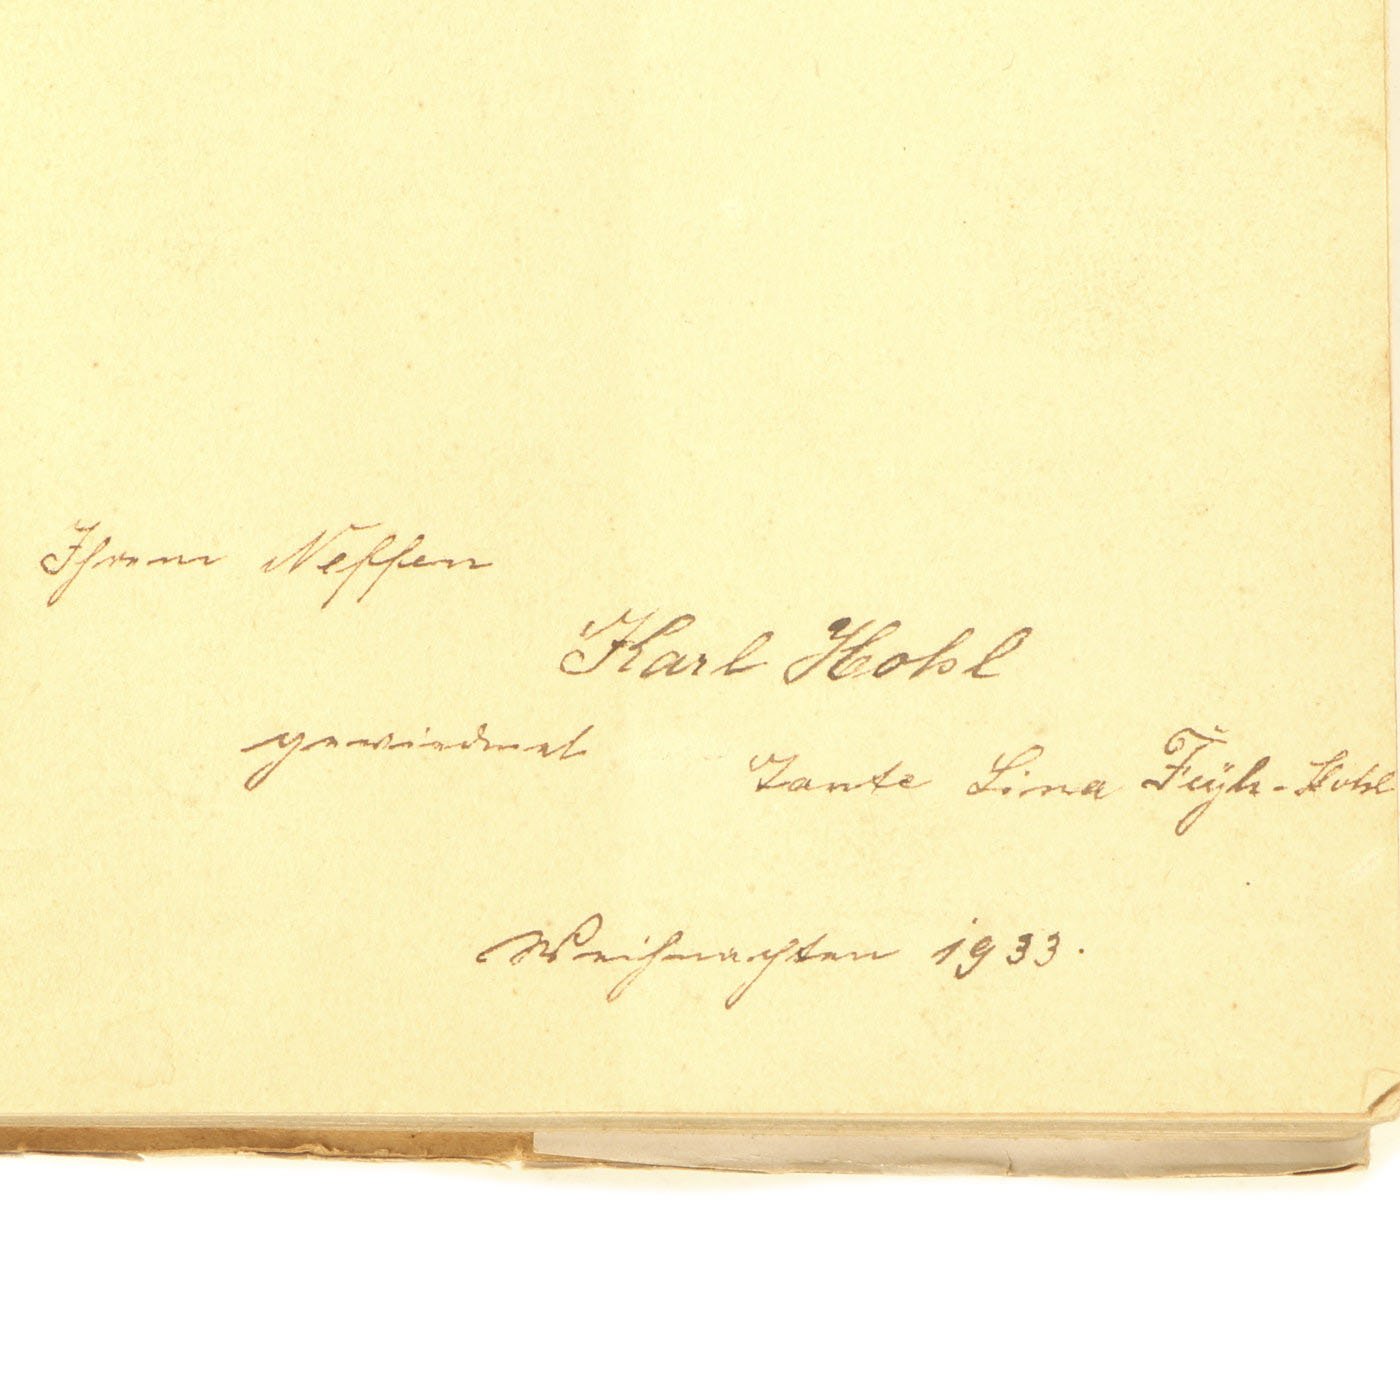 Ihrem Neffen
Karl Hohl
gewiedmet
Tante Lina Feÿh-Hohl
Weihnachten 1933.